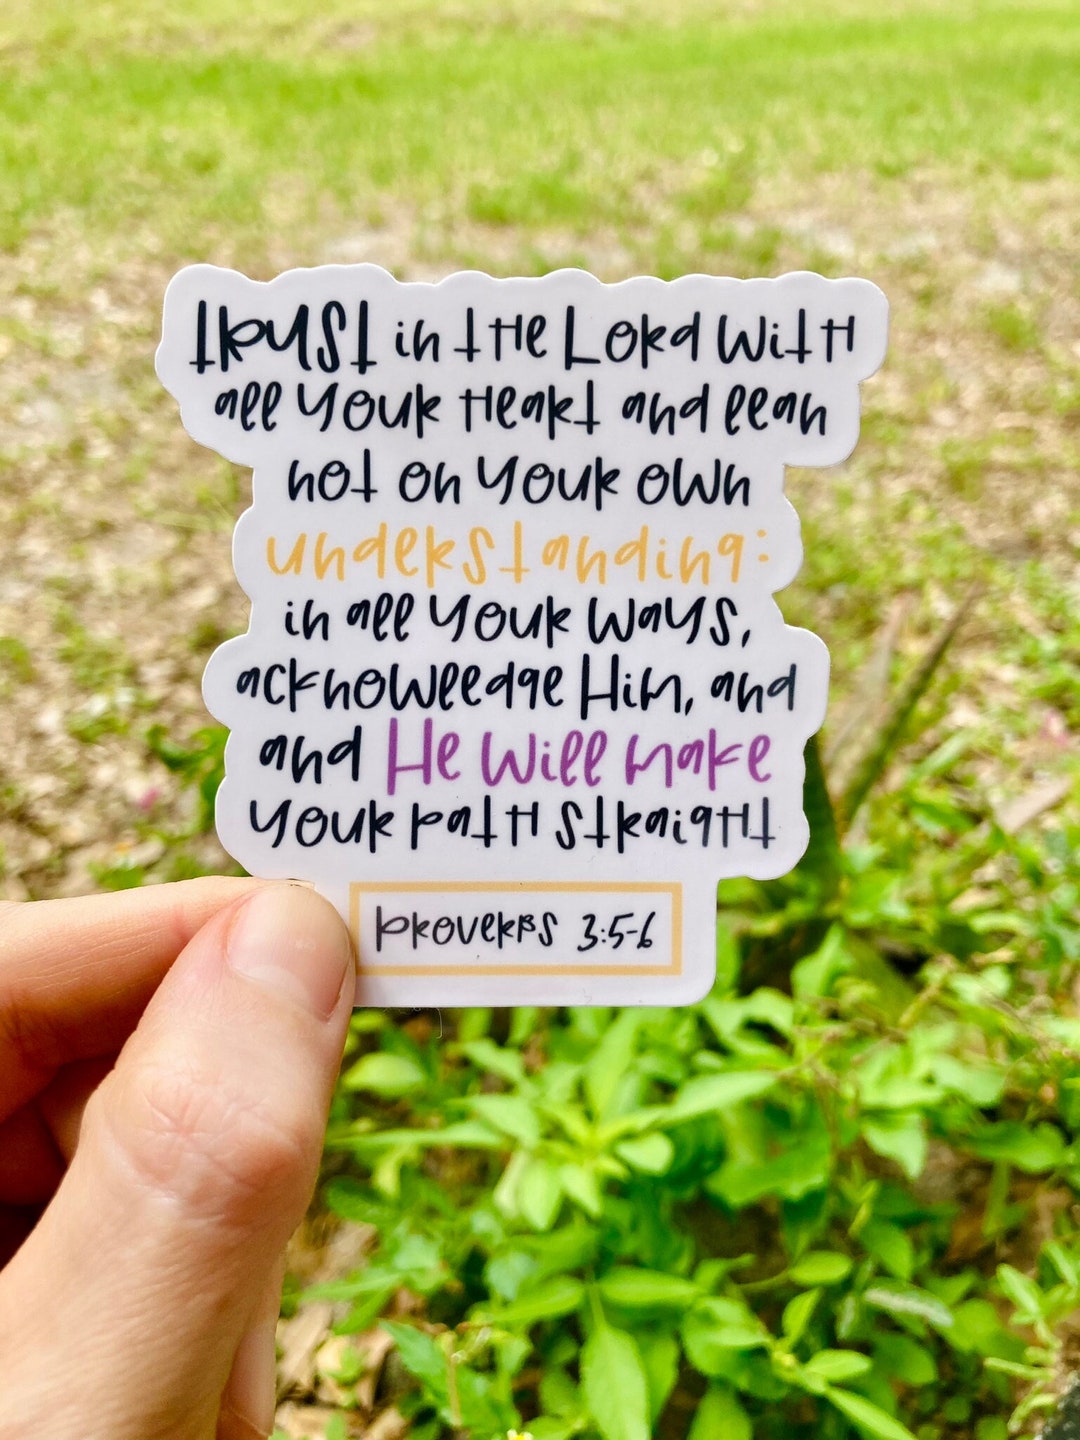 trust in the Lord with
all your heart and lean
not on your own
understanding:
in all your ways,
acknowledge Him, and
and He will make
your path straight
Proverbs 3:5-6